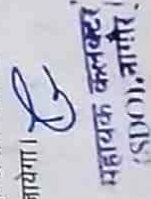 जायेगा।
सहायक कलक्टर
(SDO), नागौर।